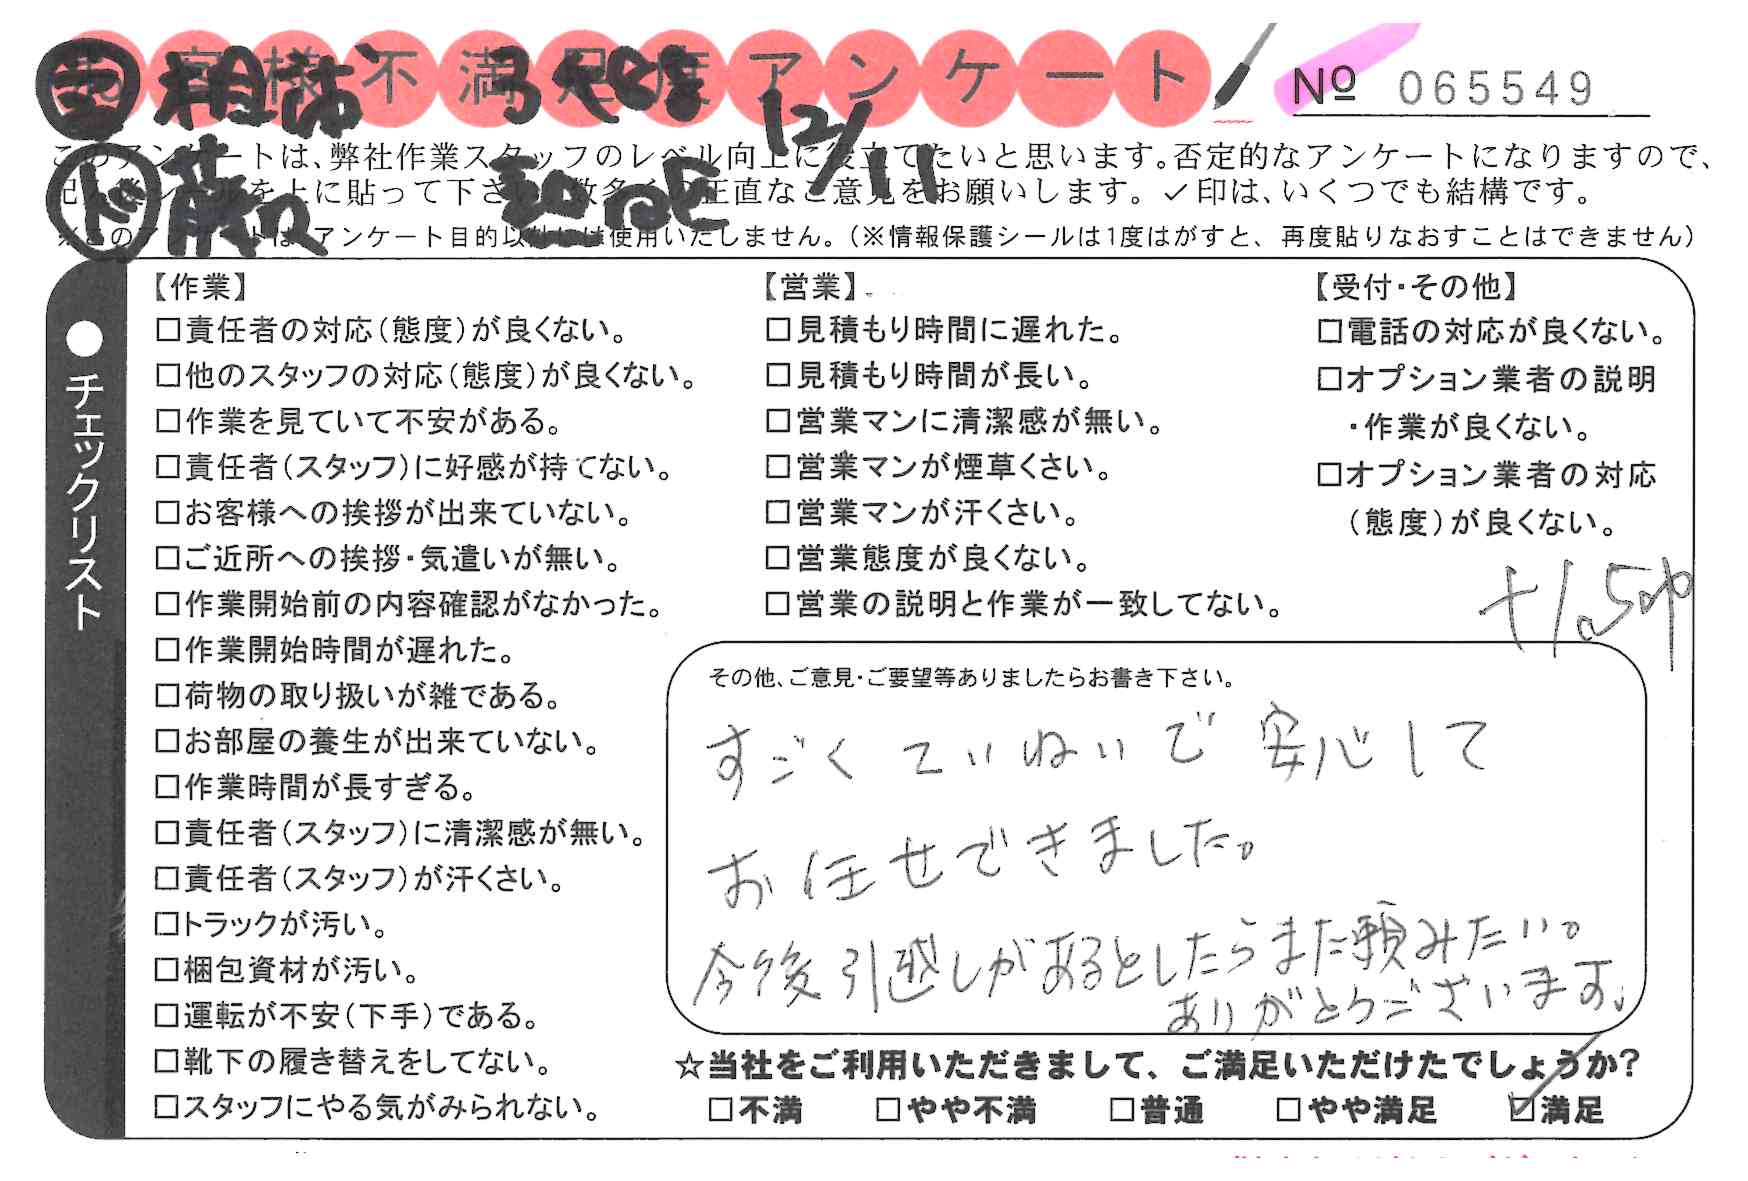 お客様不満足度アンケート
№ 065549
12/11
このアンケートは、弊社作業スタッフのレベル向上に役立てたいと思います。否定的なアンケートになりますので、
記入後シールを上に貼って下さい。数多くの正直なご意見をお願いします。✓印は、いくつでも結構です。
※このアンケートは、アンケート目的以外には使用いたしません。(※情報保護シールは1度はがすと、再度貼りなおすことはできません)
●チェックリスト
【作業】
□責任者の対応(態度)が良くない。
□他のスタッフの対応(態度)が良くない。
□作業を見ていて不安がある。
□責任者(スタッフ)に好感が持てない。
□お客様への挨拶が出来ていない。
□ご近所への挨拶・気遣いが無い。
□作業開始前の内容確認がなかった。
□作業開始時間が遅れた。
□荷物の取り扱いが雑である。
□お部屋の養生が出来ていない。
□作業時間が長すぎる。
□責任者(スタッフ)に清潔感が無い。
□責任者(スタッフ)が汗くさい。
□トラックが汚い。
□梱包資材が汚い。
□運転が不安(下手)である。
□靴下の履き替えをしてない。
□スタッフにやる気がみられない。
【営業】
□見積もり時間に遅れた。
□見積もり時間が長い。
□営業マンに清潔感が無い。
□営業マンが煙草くさい。
□営業マンが汗くさい。
□営業態度が良くない。
□営業の説明と作業が一致してない。
【受付・その他】
□電話の対応が良くない。
□オプション業者の説明
・作業が良くない。
□オプション業者の対応
(態度)が良くない。
その他、ご意見・ご要望等ありましたらお書き下さい。
すごくていねいで安心して
お任せできました。
今後引越しがあるとしたらまた頼みたい。
ありがとうございます。
☆当社をご利用いただきまして、ご満足いただけたでしょうか?
□不満 □やや不満 □普通 □やや満足 ☑満足